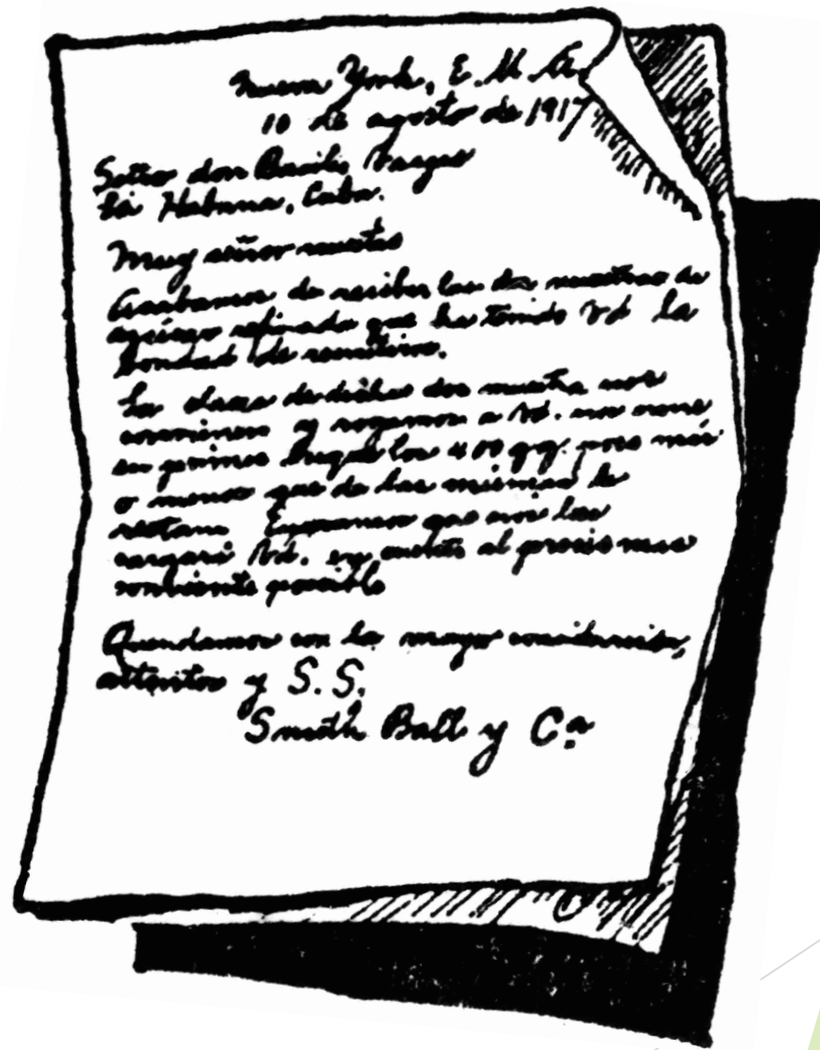 Nueva York, E. U. A.
10 de agosto de 1917
Señor don Basilio Vargas
La Habana, Cuba.
Muy señor nuestro
Acabamos de recibir las dos muestras de
azúcar refinada que ha tenido Vd la
bondad de remitirnos.
La clase de dicha dos muestra nos
convienen y rogamos a Vd. nos
en primer lugar los 400 qq. poco más
o menos que de las mismas le
restan. Esperamos que nos las
cargará Vd. en cuenta al precio mas
conviente posible
Quedamos con la mayor consideración,
attentos y S. S.
Smith Ball y Cª